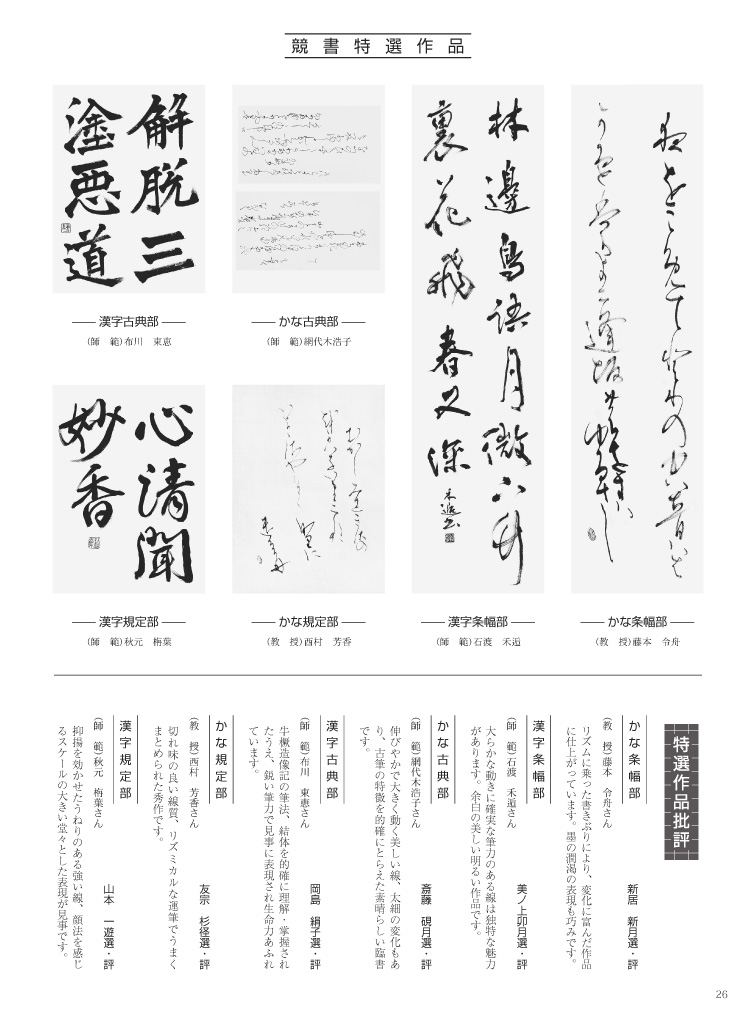 競書特選作品
解脱三
塗悪道
漢字古典部
（師　範）布川　東恵
かな古典部
（師　範）網代木浩子
心清聞
妙香
漢字規定部
（師　範）秋元　栴葉
かな規定部
（教　授）西村　芳香
林邊鳥語月微下竹
裏花飛春又深
漢字条幅部
（師　範）石渡　禾逅
かな条幅部
（教　授）藤本　令舟
特選作品批評
かな条幅部
新居　新月選・評
（教　授）藤本　令舟さん
リズムに乗った書きぶりにより、変化に富んだ作品
に仕上がっています。墨の潤渇の表現も巧みです。
漢字条幅部
美ノ上卯月選・評
（師　範）石渡　禾逅さん
大らかな動きに確実な筆力のある線は独特な魅力
があります。余白の美しい明るい作品です。
かな古典部
斎藤　硯月選・評
（師　範）網代木浩子さん
伸びやかで大きく動く美しい線、太細の変化もあ
り、古筆の特徴を的確にとらえた素晴らしい臨書
です。
漢字古典部
岡島　絹子選・評
（師　範）布川　東恵さん
牛橛造像記の筆法、結体を的確に理解・掌握され
たうえ、鋭い筆力で見事に表現され生命力あふれ
ています。
かな規定部
友宗　杉径選・評
（教　授）西村　芳香さん
切れ味の良い線質、リズミカルな運筆でうまく
まとめられた秀作です。
漢字規定部
山本　一遊選・評
（師　範）秋元　栴葉さん
抑揚を効かせたうねりのある強い線、顔法を感じ
るスケールの大きい堂々とした表現が見事です。
26